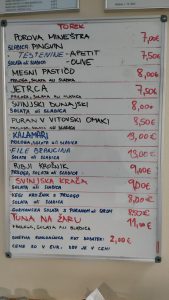 TOREK
POROVA MINEŠTRA 7,00€
SLADICA PINGUIN
-TESTENINE - APETIT 7,50€
SOLATA ali SLADICA - OLIVE
MESNI PASTIČO 8,00€
PRILOGA, SOLATA ali SLADICA
JETRCA 7,50€
PRILOGA, SOLATA ali SLADICA
SVINJSKI DUNAJSKI 8,00€
PRILOGA, SOLATA ali SLADICA
PURAN V VITOVSKI OMAKI 8,50€
PRILOGA, SOLATA ali SLADICA
KALAMARI 13,00€
PRILOGA, SOLATA ali SLADICA
FILE BRANCINA 13,00€
PRILOGA, SOLATA ali SLADICA
RIBJI KROŽNIK 9,00€
PRILOGA, SOLATA ali SLADICA
SVINJSKA KRAČA 9,00€
SOLATA ali SLADICA
VEGI KROŽNIK S PRILOGO 8,00€
SOLATA ali SLADICA
GURMANSKA SOLATA S PURANOM ali SIROM 8,50€
TUNA NA ŽARU 11,00€
PRILOGA, SOLATA ali SLADICA
GOVEJA KUHALNICA KOT DODATEK: 2,00€
CENE SO V EUR. DDV JE V CENI